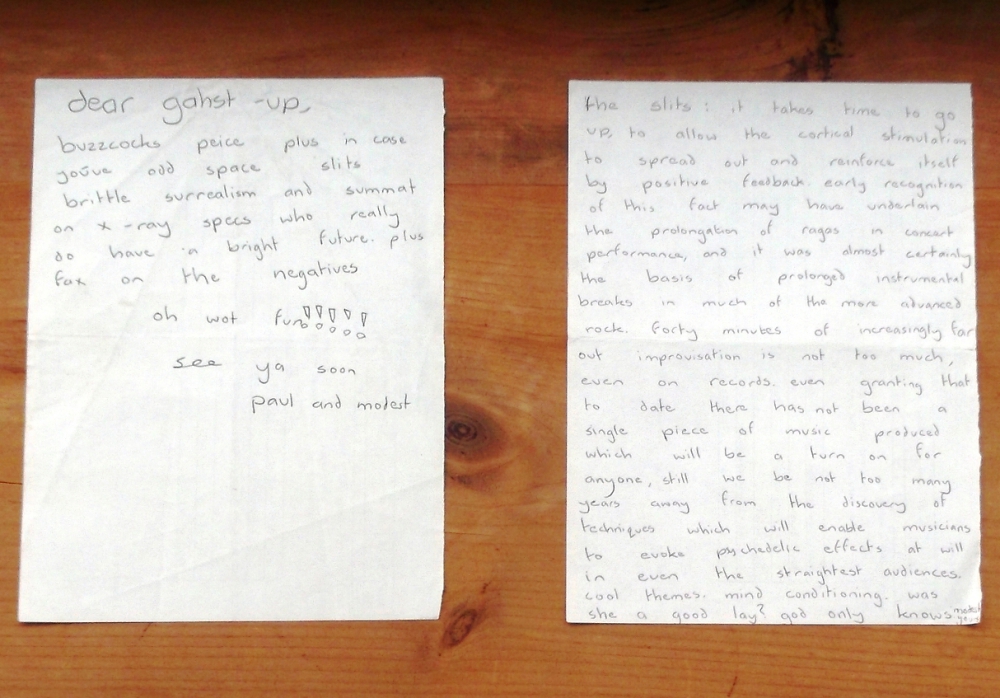 dear gahst -up,
buzzcocks peice plus in case
youve odd space slits
brittle surrealism and summat
on x-ray specs who really
do have a bright future. plus
fax on the negatives
oh wot fun!!!!!
see ya soon
paul and modest
the slits : it takes time to go
up, to allow the cortical stimulation
to spread out and reinforce itself
by positive feedback. early recognition
of this fact may have underlain
the prolongation of ragas in concert
performance, and it was almost certainly
the basis of prolonged instrumental
breaks in much of the more advanced
rock. forty minutes of increasingly far
out improvisation is not too much,
even on records. even granting that
to date there has not been a
single piece of music produced
which will be a turn on for
anyone, still we be not too many
years away from the discovery of
techniques which will enable musicians
to evoke psychedelic effects at will
in even the straightest audiences.
cool themes. mind conditioning. was
she a good lay? god only knows
modest